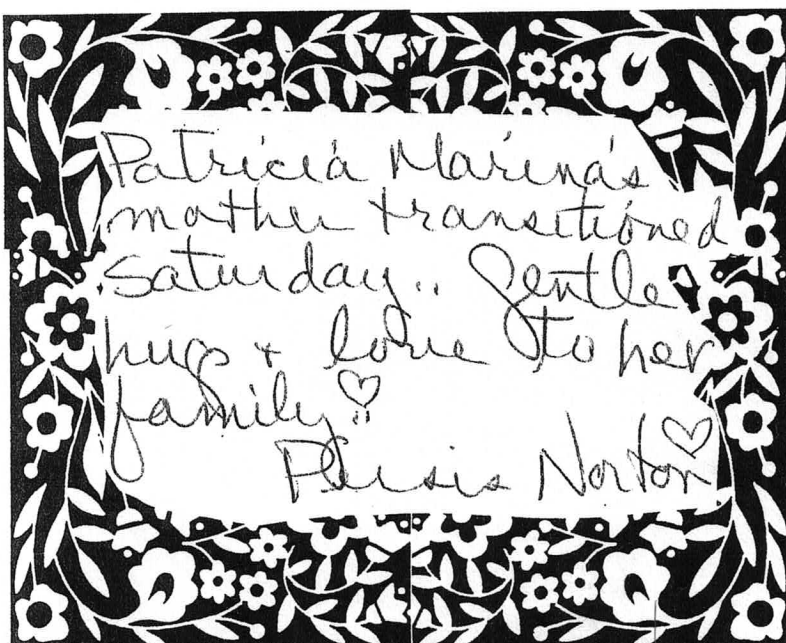 Patricia Marina's
mother transitioned
Saturday.. Gentle
hugs + love to her
family..♡
Persis Norton♡